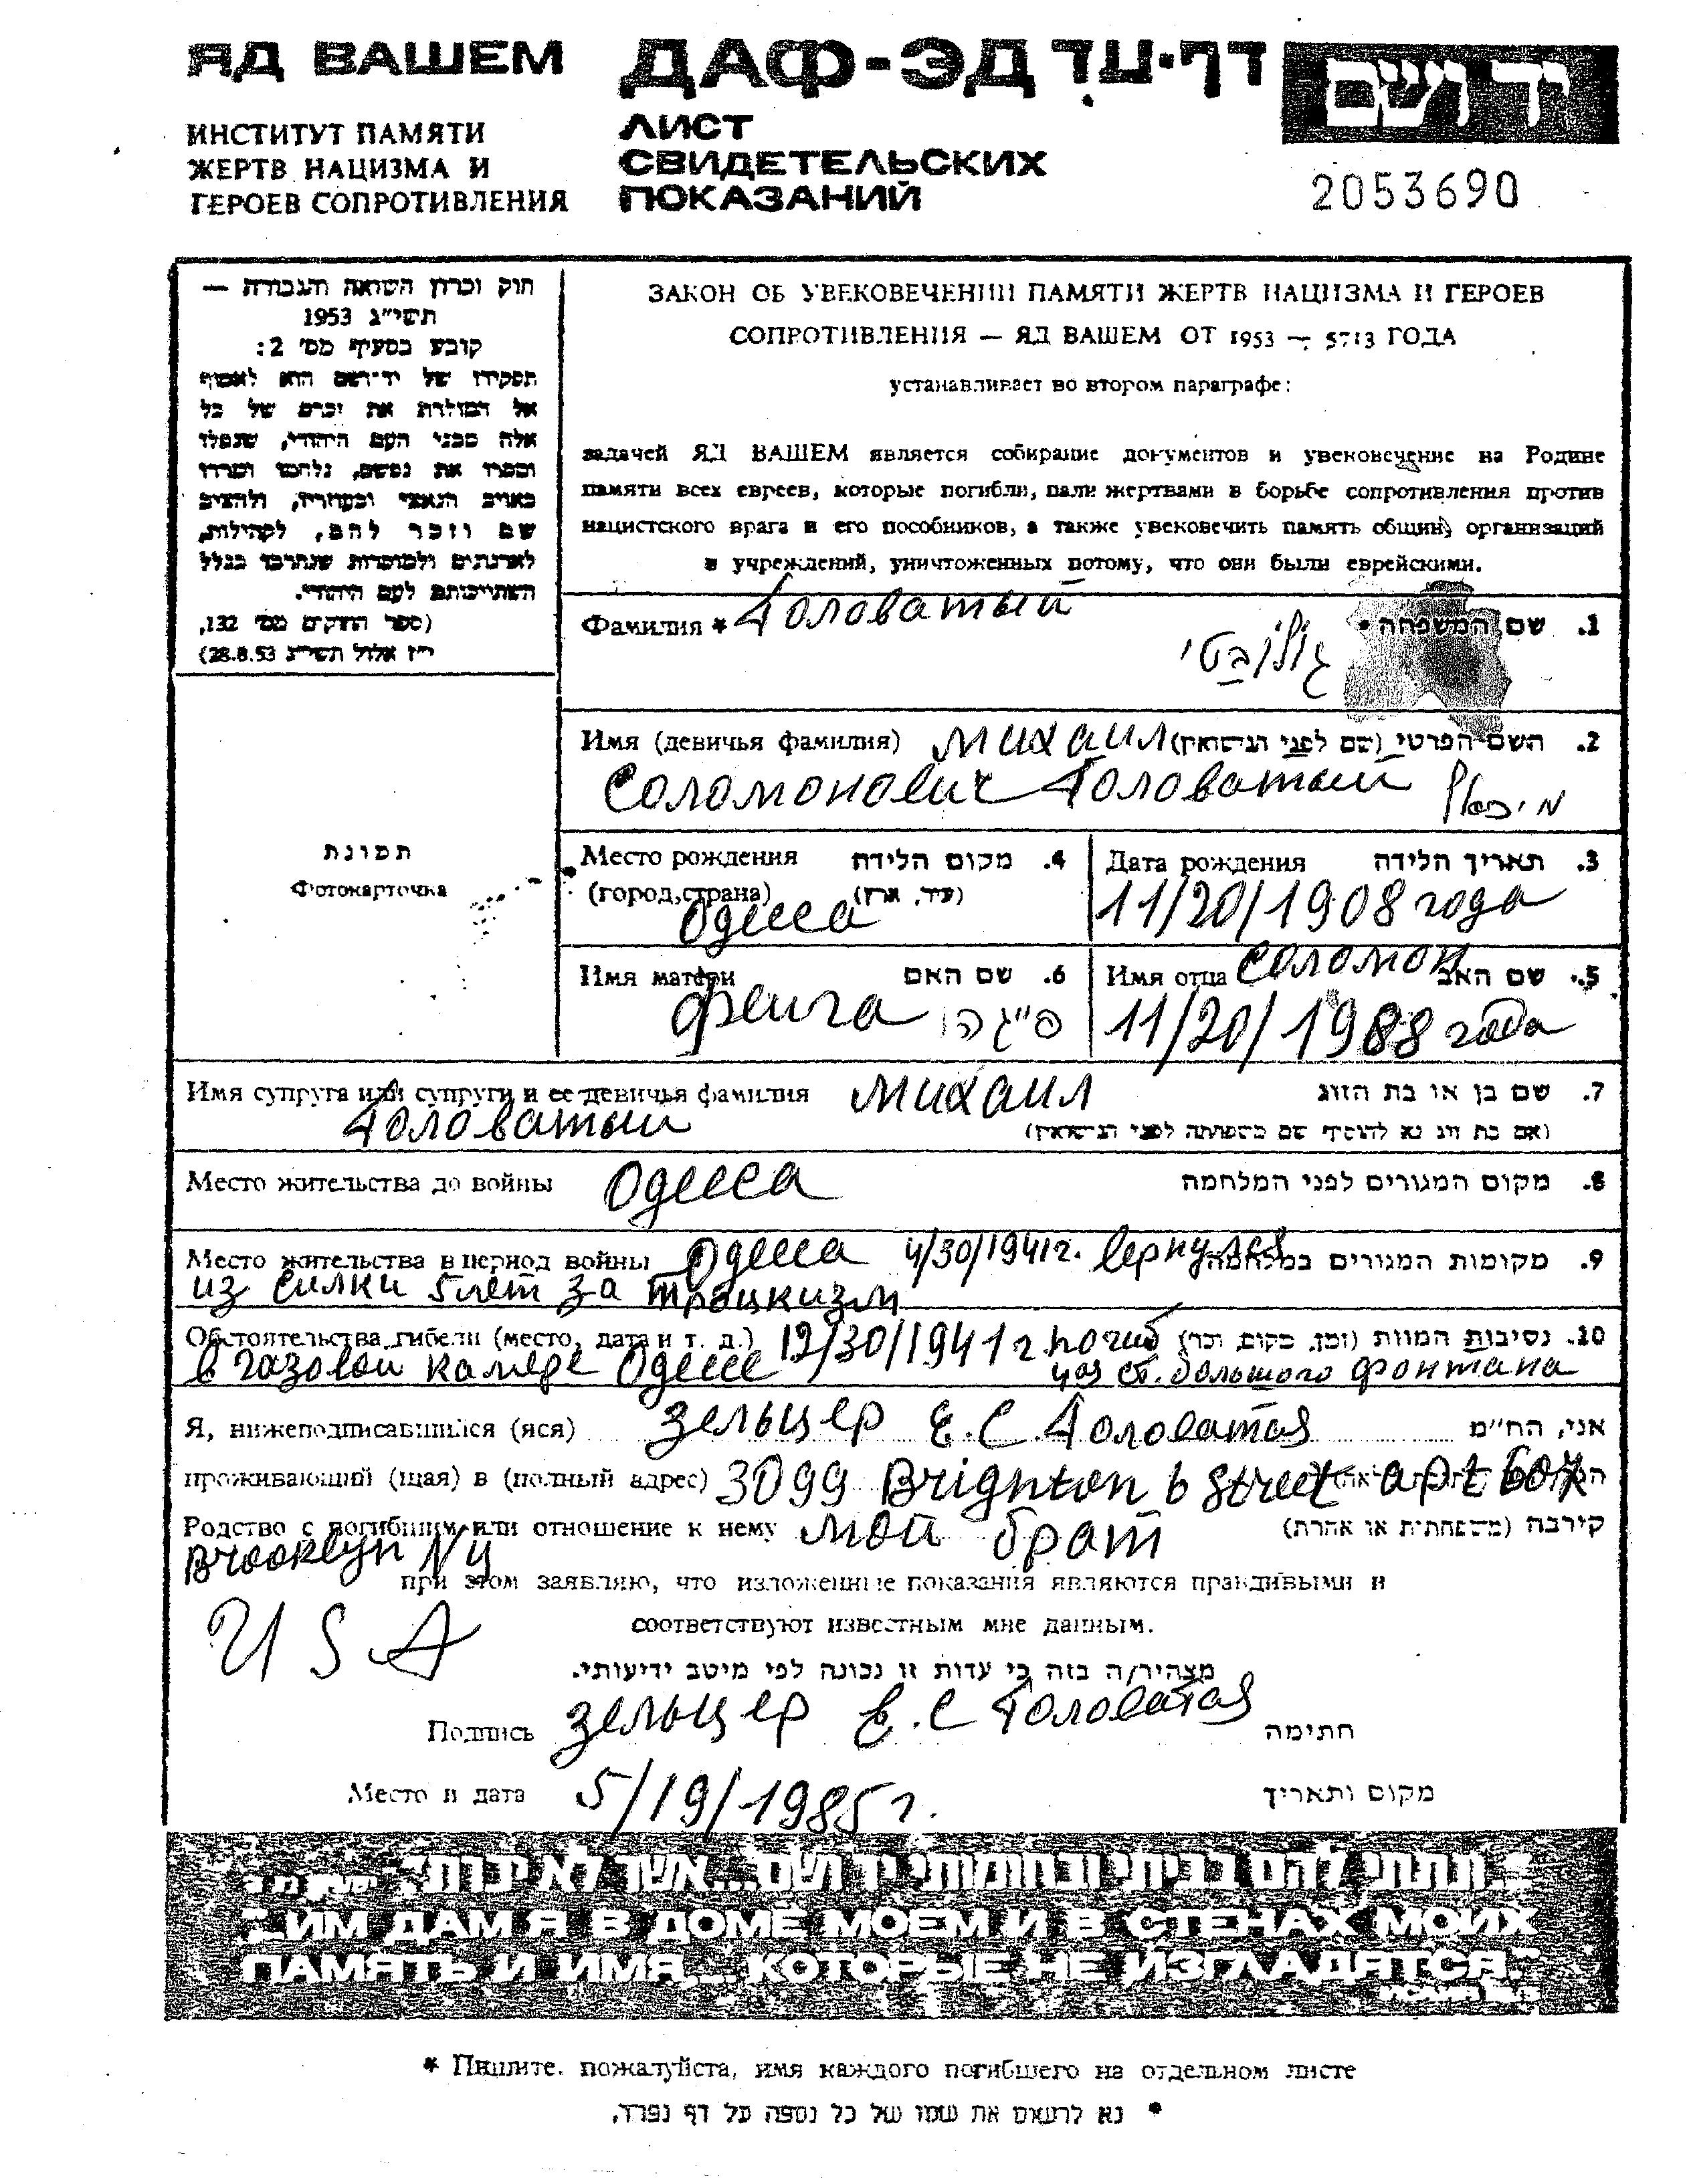 ЯД ВАШЕМ
ИНСТИТУТ ПАМЯТИ
ЖЕРТВ НАЦИЗМА И
ГЕРОЕВ СОПРОТИВЛЕНИЯ
ДАФ-ЭД דף-עד
ЛИСТ
СВИДЕТЕЛЬСКИХ
ПОКАЗАНИЙ
יד ושם
2053690
חוק וכרון השואה והגבורה —
תשי"ג 1953
קובע בסעיף מס' 2:
תפקידו של יד-ושם הוא לאסוף
אל המולדת את זכרם של כל
אלה מבני העם היהודי, שנפלו
ומסרו את נפשם, נלחמו ומרדו
באויב הנאצי ובעוזריו, ולהציב
שם וזכר להם, לקהילות,
לארגונים ולמוסדות שנחרבו בגלל
השתייכותם לעם היהודי.
(ספר החוקים מס' 132,
י"ז אלול תשי"ג 28.8.53)
ЗАКОН ОБ УВЕКОВЕЧЕНИИ ПАМЯТИ ЖЕРТВ НАЦИЗМА И ГЕРОЕВ
СОПРОТИВЛЕНИЯ — ЯД ВАШЕМ ОТ 1953 — 5713 ГОДА
устанавливает во втором параграфе:
задачей ЯД ВАШЕМ является собирание документов и увековечение на Родине
памяти всех евреев, которые погибли, пали жертвами в борьбе сопротивления против
нацистского врага и его пособников, а также увековечить память общин, организаций
и учреждений, уничтоженных потому, что они были еврейскими.
Фамилия * Головатый 1. שם המשפחה *
גולובטי
Имя (девичья фамилия) Михаил 2. השם הפרטי (שם לפני הנישואין)
Соломонович Головатый מיכאל
תמונת
Фотокарточка
Место рождения 4. מקום הלידה
(город, страна) (עיר, ארץ)
Одесса
Дата рождения 3. תאריך הלידה
11/20/1908 года
Имя матери 6. שם האם
Фейга פייגה
Имя отца Соломон 5. שם האב
11/20/1988 года
Имя супруга или супруги и ее девичья фамилия Михаил 7. שם בן או בת הזוג
Головатый (אם בת זוג נא להוסיף שם משפחתה לפני הנישואין)
Место жительства до войны Одесса 8. מקום המגורים לפני המלחמה
Место жительства в период войны Одесса 4/30/1941г. вернулся 9. מקומות המגורים במלחמה
из силки 5 лет за троцкизм
Обстоятельства гибели (место, дата и т. д.) 12/30/1941 г. погиб 10. נסיבות המוות (זמן, מקום, וכו')
в газовой камере Одессе ст. большого фонтана
Я, нижеподписавшийся (яся) Зельцер Е.С. Головатая אני, הח"מ
проживающий (щая) в (полный адрес) 3099 Brighton 6 Street apt 607
Родство с погибшим или отношение к нему мой брат קירבה (משפחתית או אחרת)
Brooklyn Ny
при этом заявляю, что изложенные показания являются правдивыми и
USA
соответствуют известным мне данным.
מצהיר/ה בזה כי עדות זו נכונה לפי מיטב ידיעותי.
Подпись Зельцер Е.С Головатая חתימה
Место и дата 5/19/1985 г. מקום ותאריך
"ונתתי להם בביתי ובחומותי יד ושם...אשר לא יכרת"
"...ИМ ДАМ Я В ДОМЕ МОЕМ И В СТЕНАХ МОИХ
ПАМЯТЬ И ИМЯ,... КОТОРЫЕ НЕ ИЗГЛАДЯТСЯ."
* Пишите, пожалуйста, имя каждого погибшего на отдельном листе
* נא לרשום את שמו של כל נספה על דף נפרד.